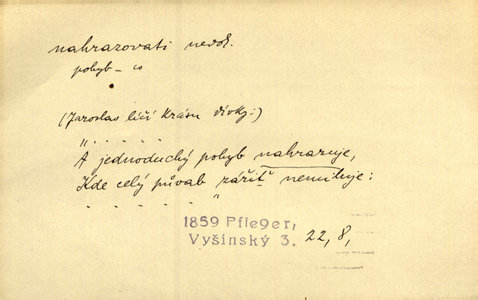 nahrazovati nedok.
pohyb – co
(Jaroslav líčí krásu dívky:)
„. . . . .
A jednoduchý pohyb nahrazuje,
Kde celý půvab zářiť nemiluje:
. . . . . . "
1859 Pfleger,
Vyšínský 3. 22, 8,